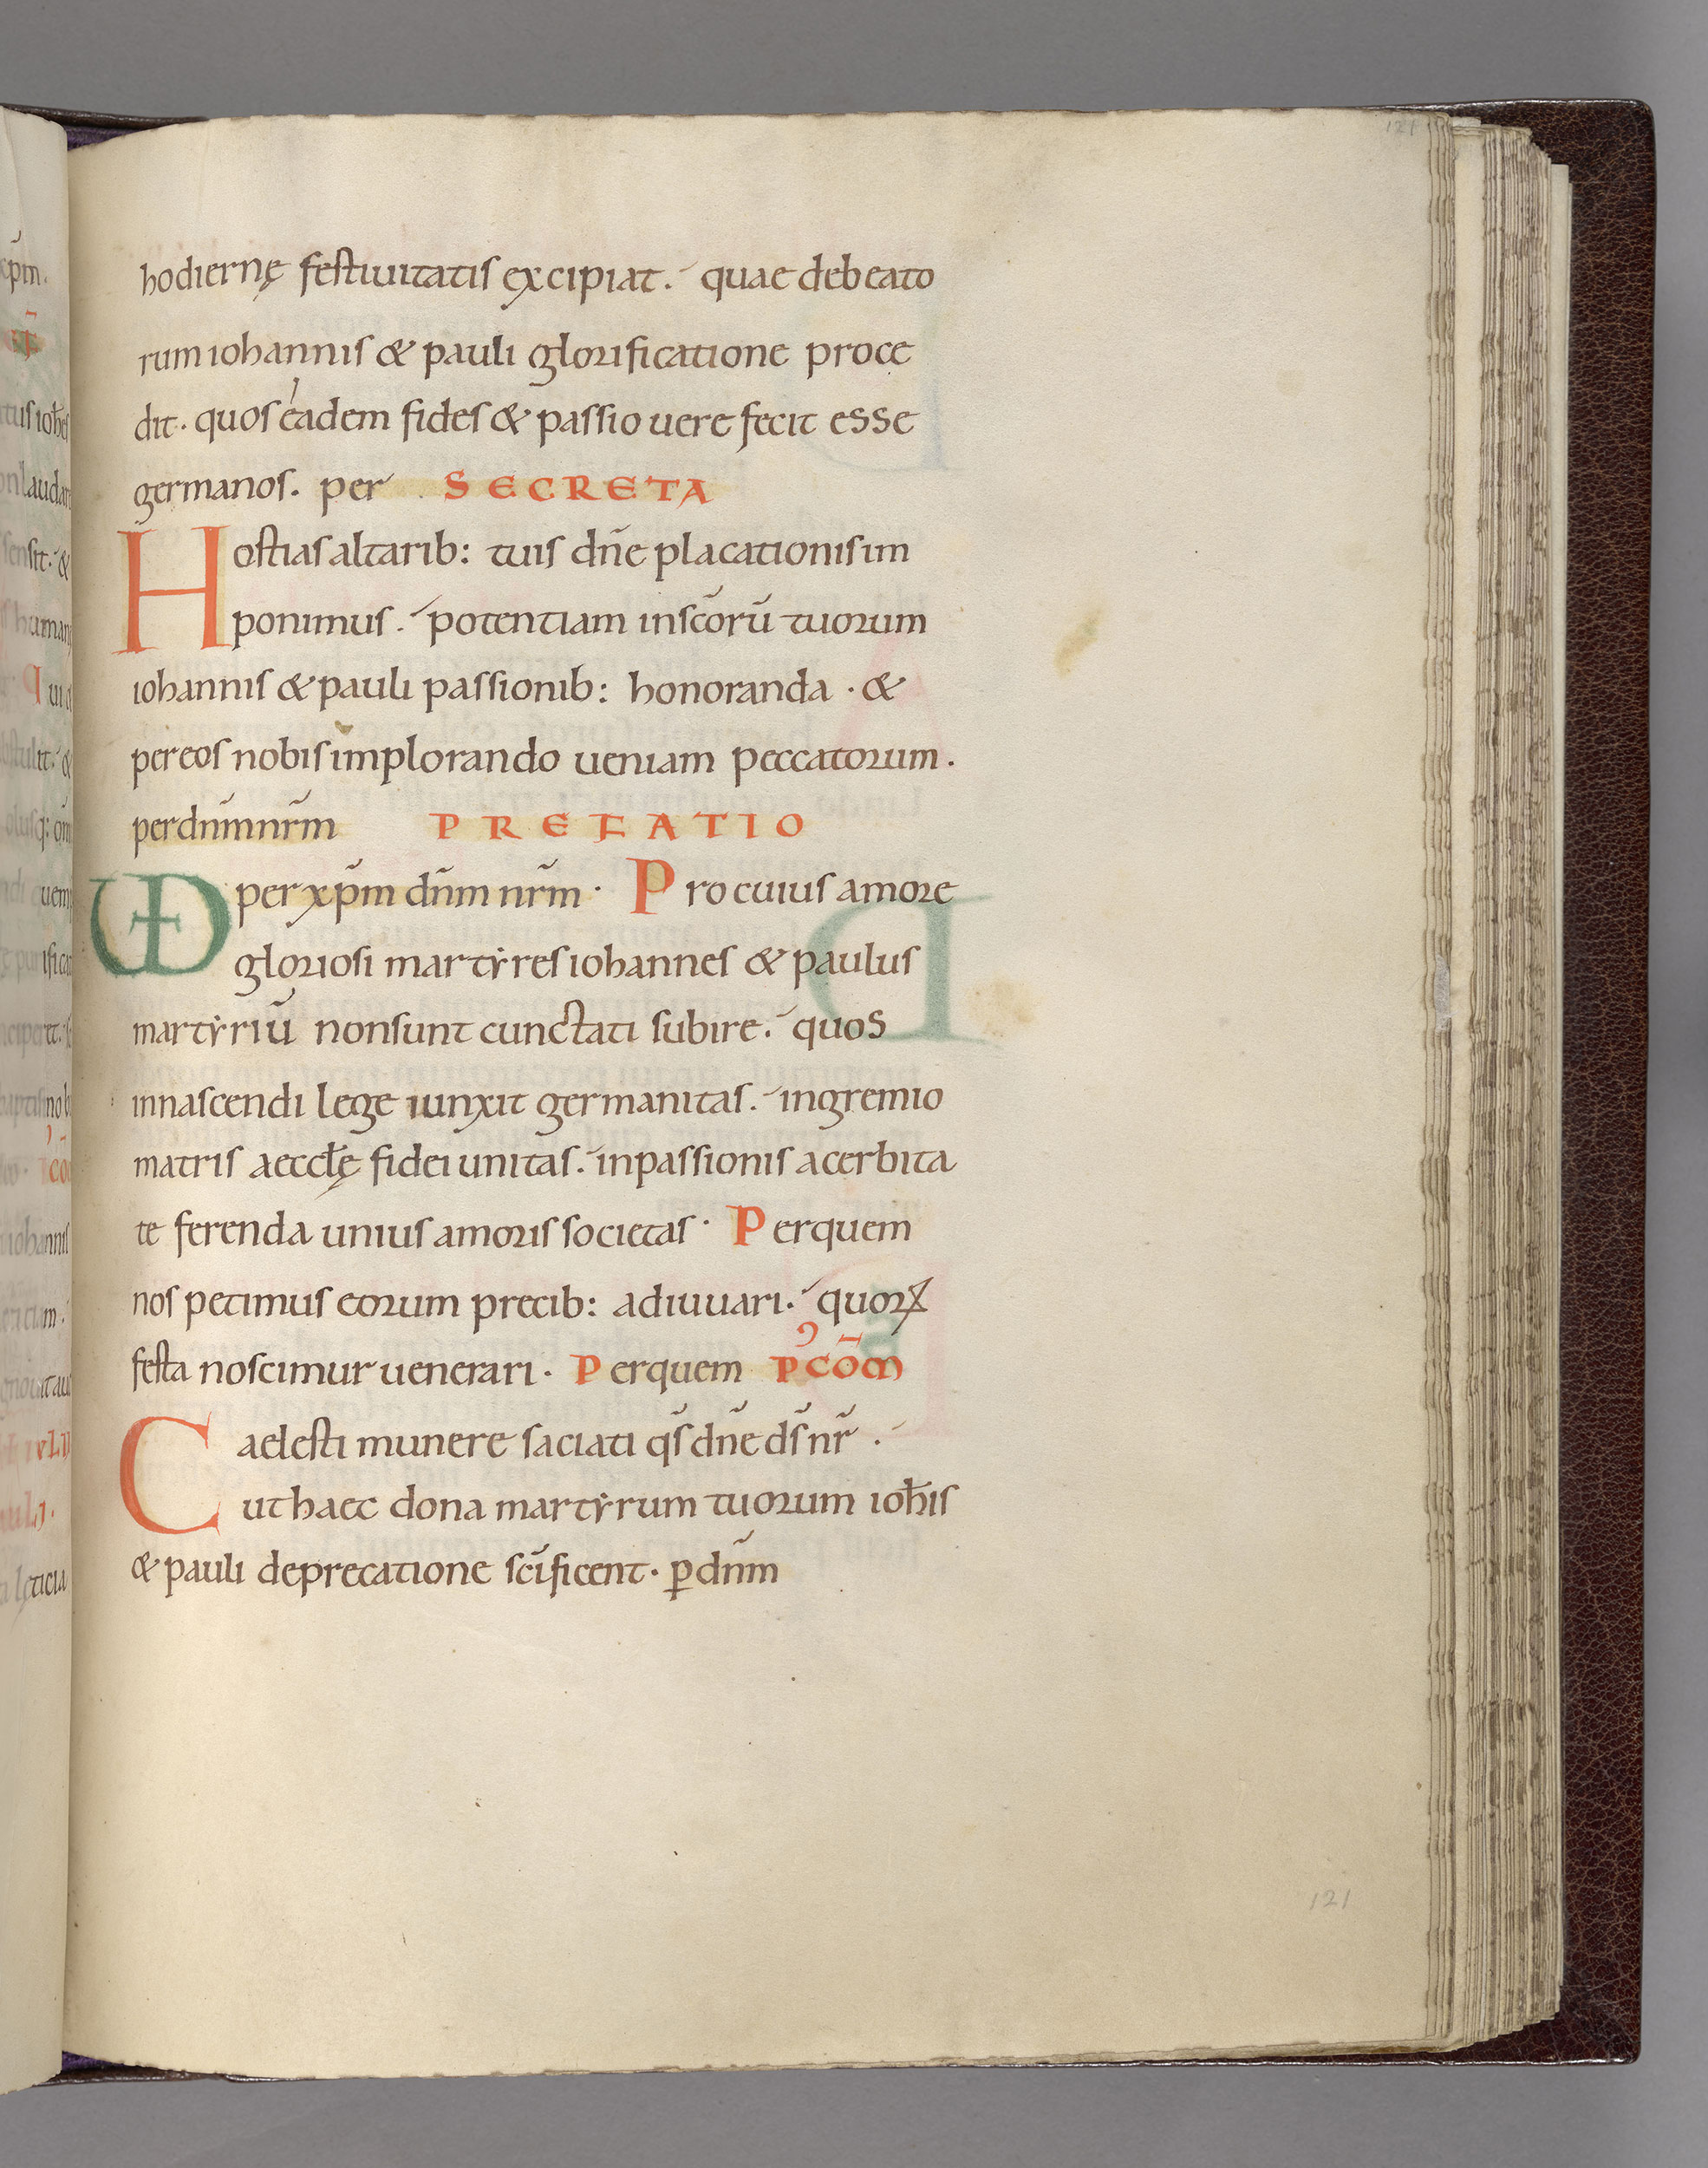 121
hodiernę festiuitatis excipiat. quae debeato
rum iohannis & pauli glorificatione proce
dit. quos eadem fides & passio uere fecit esse
germanos. per SECRETA
Hostias altarib: tuis dn̄e placationis im
ponimus. potentiam in sc̄orū tuorum
iohannis & pauli passionib: honoranda . &
per eos nobis implorando ueniam peccatorum.
per dn̄m nr̄m PREFATIO
VD per xp̄m dn̄m nr̄m. Pro cuius amore
gloriosi martẏres iohannes & paulus
martẏriū non sunt cunctati subire. quos
in nascendi lege iunxit germanitas. in gremio
matris aeccłę fidei unitas. in passionis acerbita
te ferenda unius amoris societas. Per quem
nos petimus eorum precib: adiuuari. quorꝝ
festa noscimur uenerari. Per quem P᾽CŌM
Caelesti munere saciati qs̄ dn̄e ds̄ nr̄ .
ut haec dona martẏrum tuorum ioħis
& pauli deprecatione sc̄ificent. ꝑ dn̄m
121